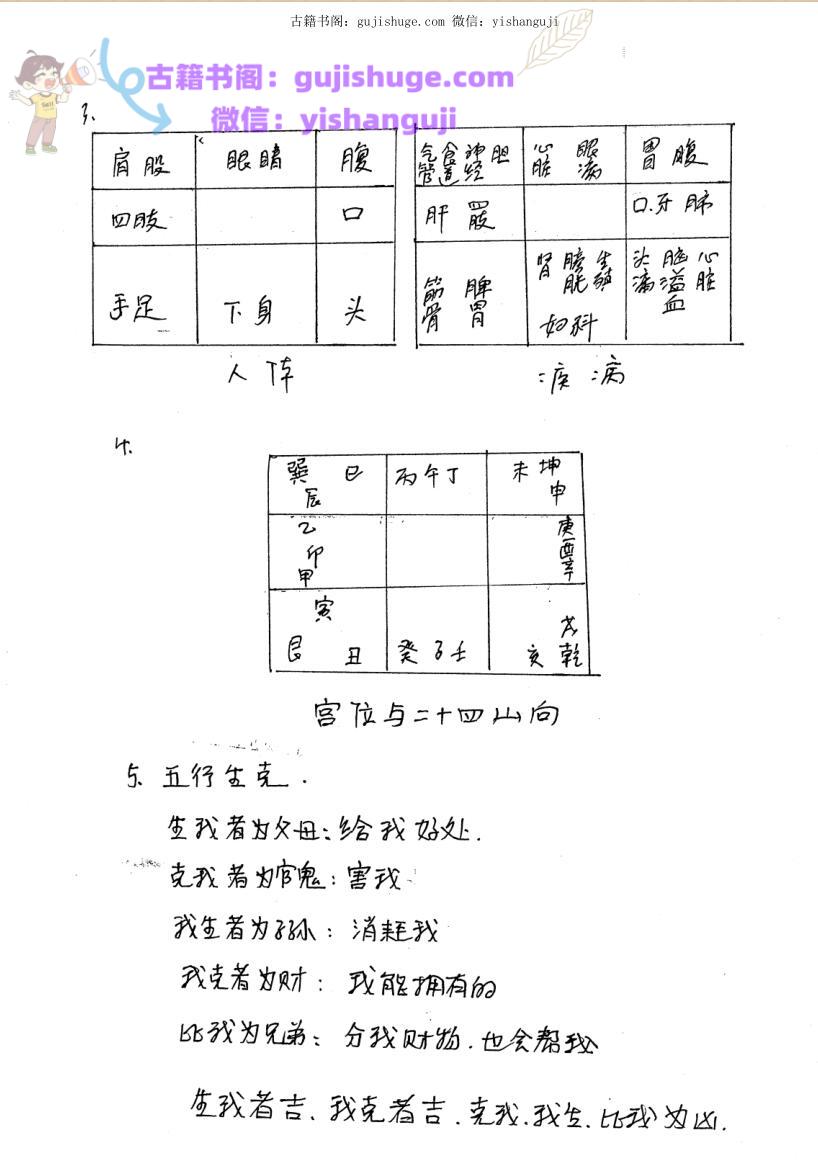 古籍书阁: gujishuge.com 微信: yishanguji
古籍书阁：gujishuge.com
微信：yishanguji
3、
肩股 眼睛 腹
四肢 口
手足 下身 头
人体
气管 食道 神经 胆 心脏 眼病 胃腹
肝 四肢 口.牙 肺
筋骨 脾胃 肾 膀胱 生殖 妇科 头痛 脑溢血 心脏
疾病
4.
巽 巳 辰 丙午丁 未坤申
乙卯甲 庚酉辛
寅 艮 丑 癸子壬 戌 亥乾
宫位与二十四山向
5、五行生克.
生我者为父母：给我好处.
克我者为官鬼：害我
我生者为子孙：消耗我
我克者为财：我能拥有的
比我为兄弟：分我财物.也会帮我
生我者吉、我克者吉.克我.我生.比我为凶.